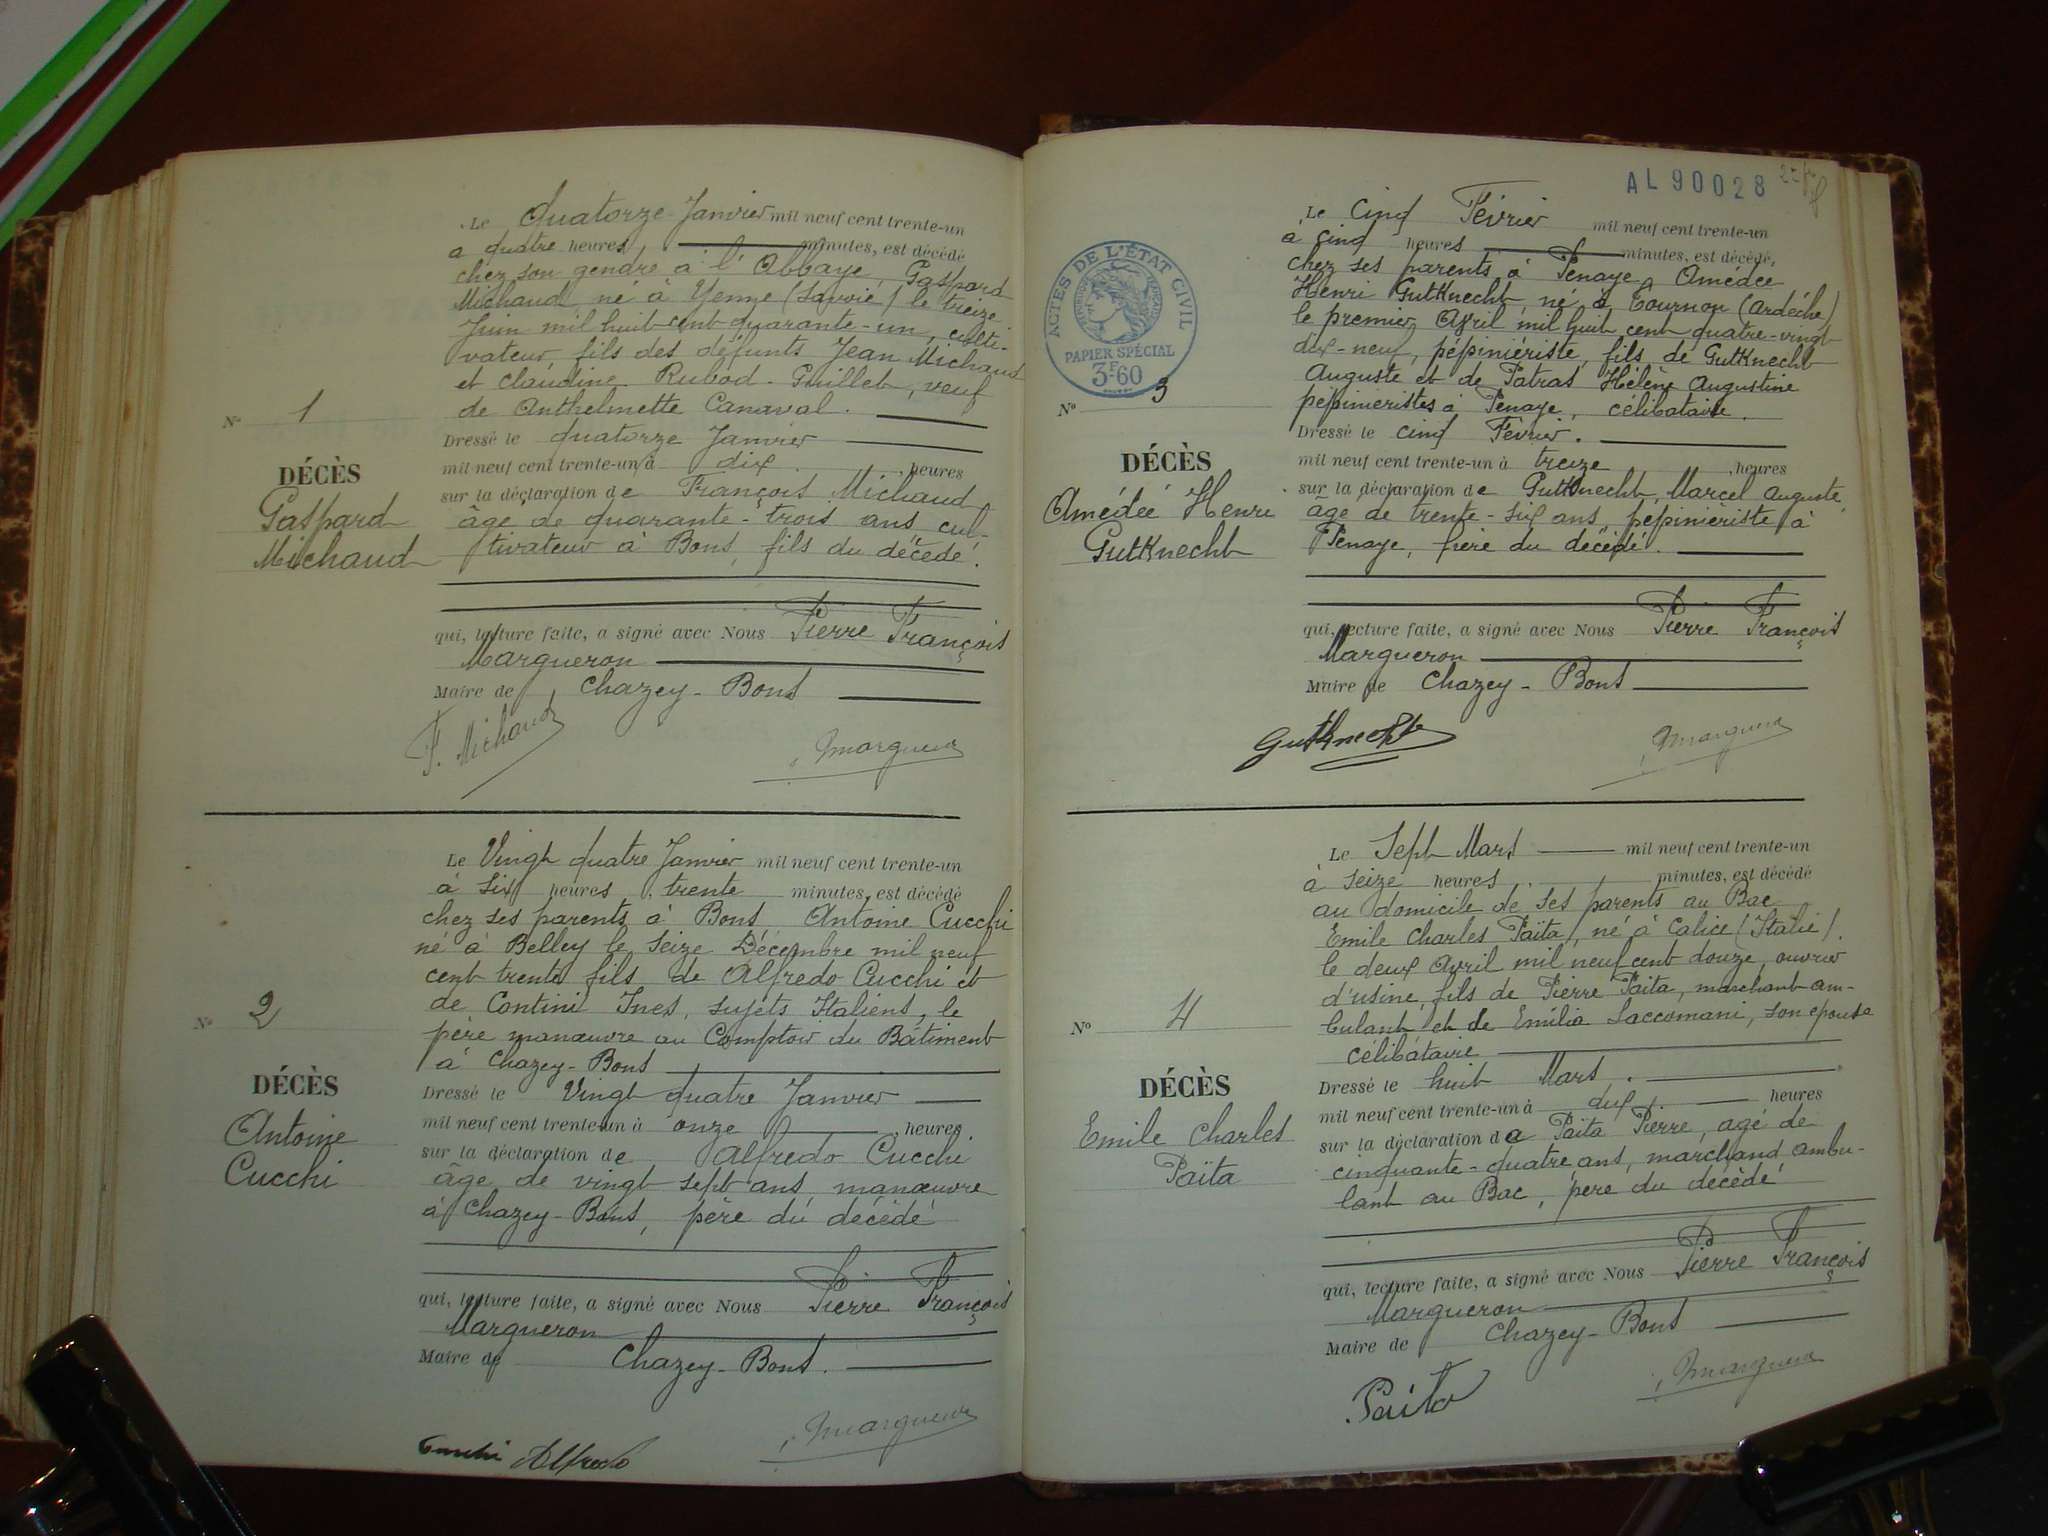 Le Quatorze Janvier mil neuf cent trente-un
a quatre heures, minutes, est décédé
chez son gendre à l'Abbaye, Gaspard
Michaud né à Yenne (Savoie) le treize
Juin mil huit cent quarante-un, culti-
vateur, fils des défunts Jean Michaud
et Claudine Rubod-Guillet, veuf
de Anthelmette Canaval.
N° 1
DÉCÈS
Gaspard
Michaud
Dressé le quatorze Janvier
mil neuf cent trente-un à dix heures
sur la déclaration de François Michaud
âgé de quarante-trois ans, cul-
tivateur à Bons, fils du décédé.
qui, lecture faite, a signé avec Nous Pierre François
Margueron
Maire de Chazey-Bons
F. Michaud
Le Vingt quatre Janvier mil neuf cent trente-un
à six heures, trente minutes, est décédé
chez ses parents à Bons Antoine Cucchi
né à Belley le seize Décembre mil neuf
cent trente fils de Alfredo Cucchi et
de Contini Ines, sujets Italiens, le
père manœuvre au Comptoir du Bâtiment
à Chazey-Bons
N° 2
DÉCÈS
Antoine
Cucchi
Dressé le Vingt quatre Janvier
mil neuf cent trente-un à onze heures
sur la déclaration de Alfredo Cucchi
âgé de vingt sept ans, manœuvre
à Chazey-Bons, père du décédé
qui, lecture faite, a signé avec Nous Pierre François
Margueron
Maire de Chazey-Bons.
Cucchi Alfredo
AL 90028
ACTES DE L'ÉTAT CIVIL
PAPIER SPÉCIAL
3F.60
Le Cinq Février mil neuf cent trente-un
à cinq heures minutes, est décédé,
chez ses parents à Penaye, Amédée
Henri Gutknecht né à Tournon (Ardèche)
le premier Avril mil huit cent quatre-vingt
dix-neuf, pépiniériste, fils de Gutknecht
Auguste et de Patras Hélène Augustine
pépiniéristes à Penaye, célibataire.
N° 3
DÉCÈS
Amédée Henri
Gutknecht
Dressé le cinq Février.
mil neuf cent trente-un à treize heures
sur la déclaration de Gutknecht, Marcel Auguste,
âgé de trente-six ans, pépiniériste à
Penaye, frère du décédé.
qui, lecture faite, a signé avec Nous Pierre François
Margueron
Maire de Chazey-Bons
Gutknecht
Le Sept Mars mil neuf cent trente-un
à seize heures minutes, est décédé
au domicile de ses parents au Bac
Emile Charles Païta, né à Calice (Italie).
le deux Avril mil neuf cent douze, ouvrier
d'usine, fils de Pierre Païta, marchand am-
bulant et de Emilia Saccomani, son épouse
célibataire
N° 4
DÉCÈS
Emile Charles
Païta
Dressé le huit Mars.
mil neuf cent trente-un à dix heures
sur la déclaration de Païta Pierre, agé de
cinquante-quatre ans, marchand ambu-
lant au Bac, père du décédé
qui, lecture faite, a signé avec Nous Pierre François
Margueron
Maire de Chazey-Bons
Païta